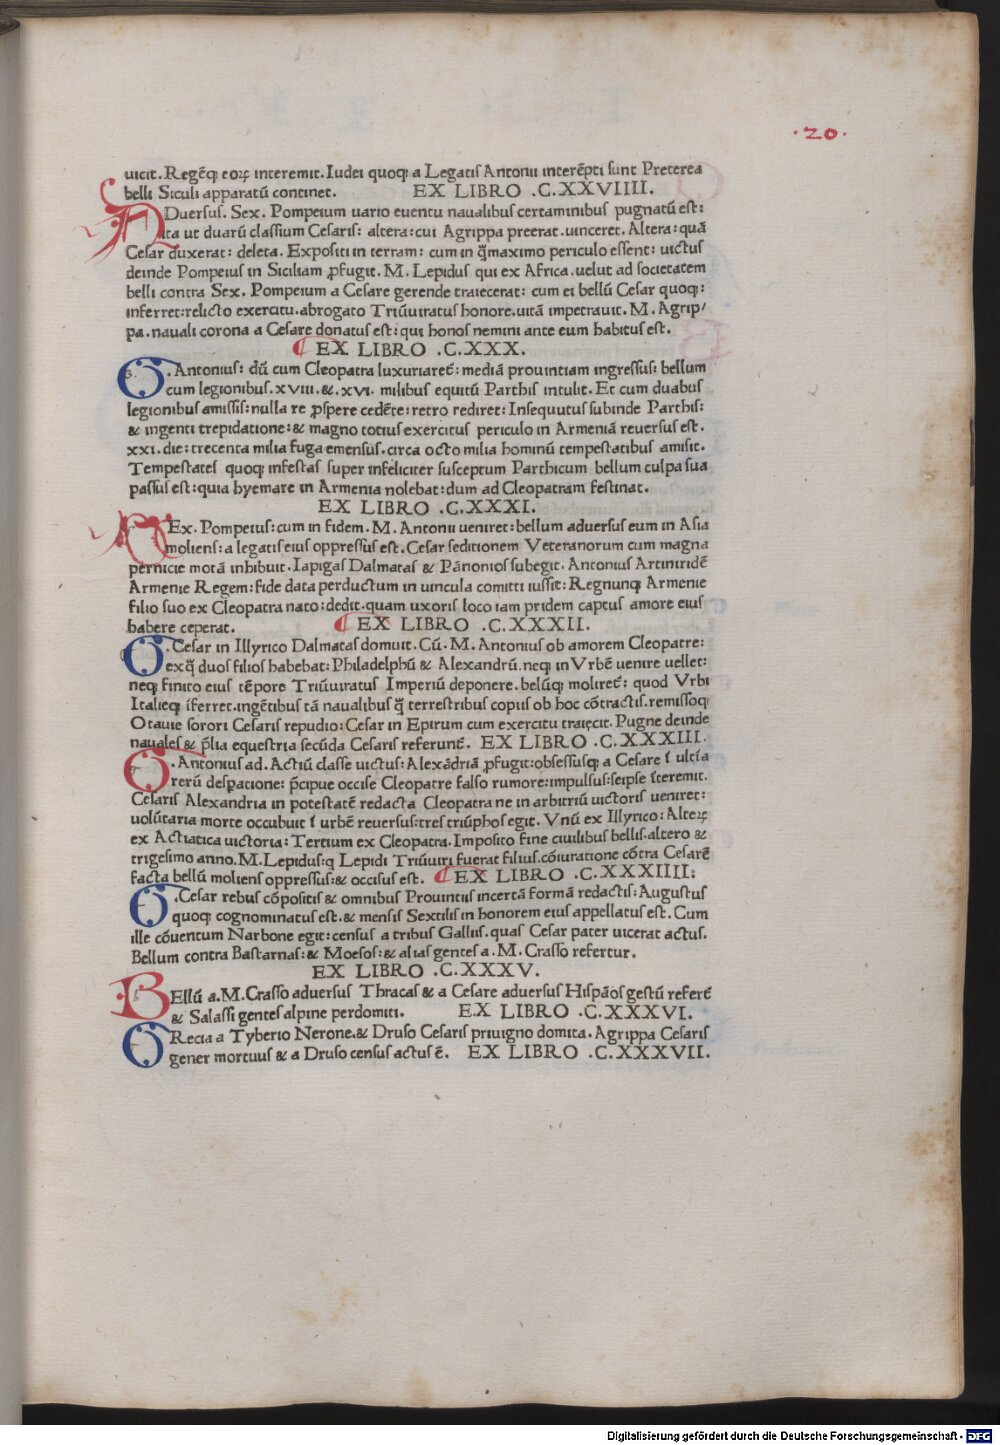 ·20·
uicit. Regēq; eoꝝ interemit. Iudei quoq; a Legatis Antonii interēpti sunt Preterea
belli Siculi apparatū continet. EX LIBRO .C.XXVIIII.
ADuersus. Sex. Pompeium uario euentu naualibus certaminibus pugnatū est:
ita ut duarū classium Cesaris: altera: cui Agrippa preerat. uinceret. Altera: quā
Cesar duxerat: deleta. Expositi in terram: cum in q̄maximo periculo essent: uictus
deinde Pompeius in Siciliam ꝓfugit. M. Lepidus qui ex Africa. uelut ad societatem
belli contra Sex. Pompeium a Cesare gerende traiecerat: cum ei bellū Cesar quoq;:
inferret: relicto exercitu. abrogato Triūuiratus honore. uitā impetrauit. M. Agrip/
pa. nauali corona a Cesare donatus est: qui honos nemini ante eum habitus est.
EX LIBRO .C.XXX.
. Antonius: dū cum Cleopatra luxuriaret̄: mediā prouintiam ingressus: bellum
cum legionibus. xviii. & .xvi. milibus equitū Parthis intulit. Et cum duabus
legionibus amissis: nulla re ꝓspere cedēte: retro rediret: Insequutus subinde Parthis:
& ingenti trepidatione: & magno totius exercitus periculo in Armeniā reuersus est.
xxi. die: trecenta milia fuga emensus. circa octo milia hominū tempestatibus amisit.
Tempestates quoq; infestas super infeliciter susceptum Parthicum bellum culpa sua
passus est: quia hyemare in Armenia nolebat: dum ad Cleopatram festinat.
EX LIBRO .C.XXXI.
SEx. Pompeius: cum in fidem. M. Antonii ueniret: bellum aduersus eum in Asia
moliens: a legatis eius oppressus est. Cesar seditionem Veteranorum cum magna
pernicie motā inhibuit. Iapigas Dalmatas & Pānonios subegit. Antonius Artiniridē
Armenie Regem: fide data perductum in uincula comitti iussit: Regnunq; Armenie
filio suo ex Cleopatra nato: dedit. quam uxoris loco iam pridem captus amore eius
habere ceperat. EX LIBRO .C.XXXII.
. Cesar in Illyrico Dalmatas domuit. Cū. M. Antonius ob amorem Cleopatre:
ex q̄ duos filios habebat: Philadelphū & Alexandrū. neq; in Vrbē uenire uellet:
neq; finito eius tēpore Triūuiratus Imperiū deponere. belūq; moliret̄: quod Vrbi
Italieq; īferret. ingētibus tā naualibus q̄ terrestribus copiis ob hoc cōtractis. remissoq;
Otauie sorori Cesaris repudio: Cesar in Epirum cum exercitu traiecit. Pugne deinde
nauales & p̄lia equestria secūda Cesaris referunt̄. EX LIBRO .C.XXXIII.
. Antonius ad. Actiū classe uictus: Alexādriā ꝓfugit: obsessusq; a Cesare ī ultīa
rerū despatione: p̄cipue occise Cleopatre falso rumore: impulsus: seipse īteremit.
Cesaris Alexandria in potestatē redacta Cleopatra ne in arbitriū uictoris ueniret:
uolūtaria morte occubuit ī urbē reuersus: tres triūphos egit. Vnū ex Illyrico: Alteꝝ
ex Actiatica uictoria: Tertium ex Cleopatra. Imposito fine ciuilibus bellis. altero &
trigesimo anno. M. Lepidus: q Lepidi Triūuiri fuerat filius. cōiuratione cōtra Cesarē
facta bellū moliens oppressus: & occisus est. EX LIBRO .C.XXXIIII:
. Cesar rebus cōpositis & omnibus Prouintiis incertā formā redactis: Augustus
quoq; cognominatus est. & mensis Sextilis in honorem eius appellatus est. Cum
ille cōuentum Narbone egit: census a tribus Galliis. quas Cesar pater uicerat actus.
Bellum contra Bastarnas: & Moesos: & alias gentes a. M. Crasso refertur.
EX LIBRO .C.XXXV.
BEllū a. M. Crasso aduersus Thracas & a Cesare aduersus Hispāos gestū refert̄
& Salassi gentes alpine perdomiti. EX LIBRO .C.XXXVI.
Recia a Tyberio Nerone. & Druso Cesaris priuigno domita. Agrippa Cesaris
gener mortuus & a Druso census actus ē. EX LIBRO .C.XXXVII.
Digitalisierung gefördert durch die Deutsche Forschungsgemeinschaft - DFG